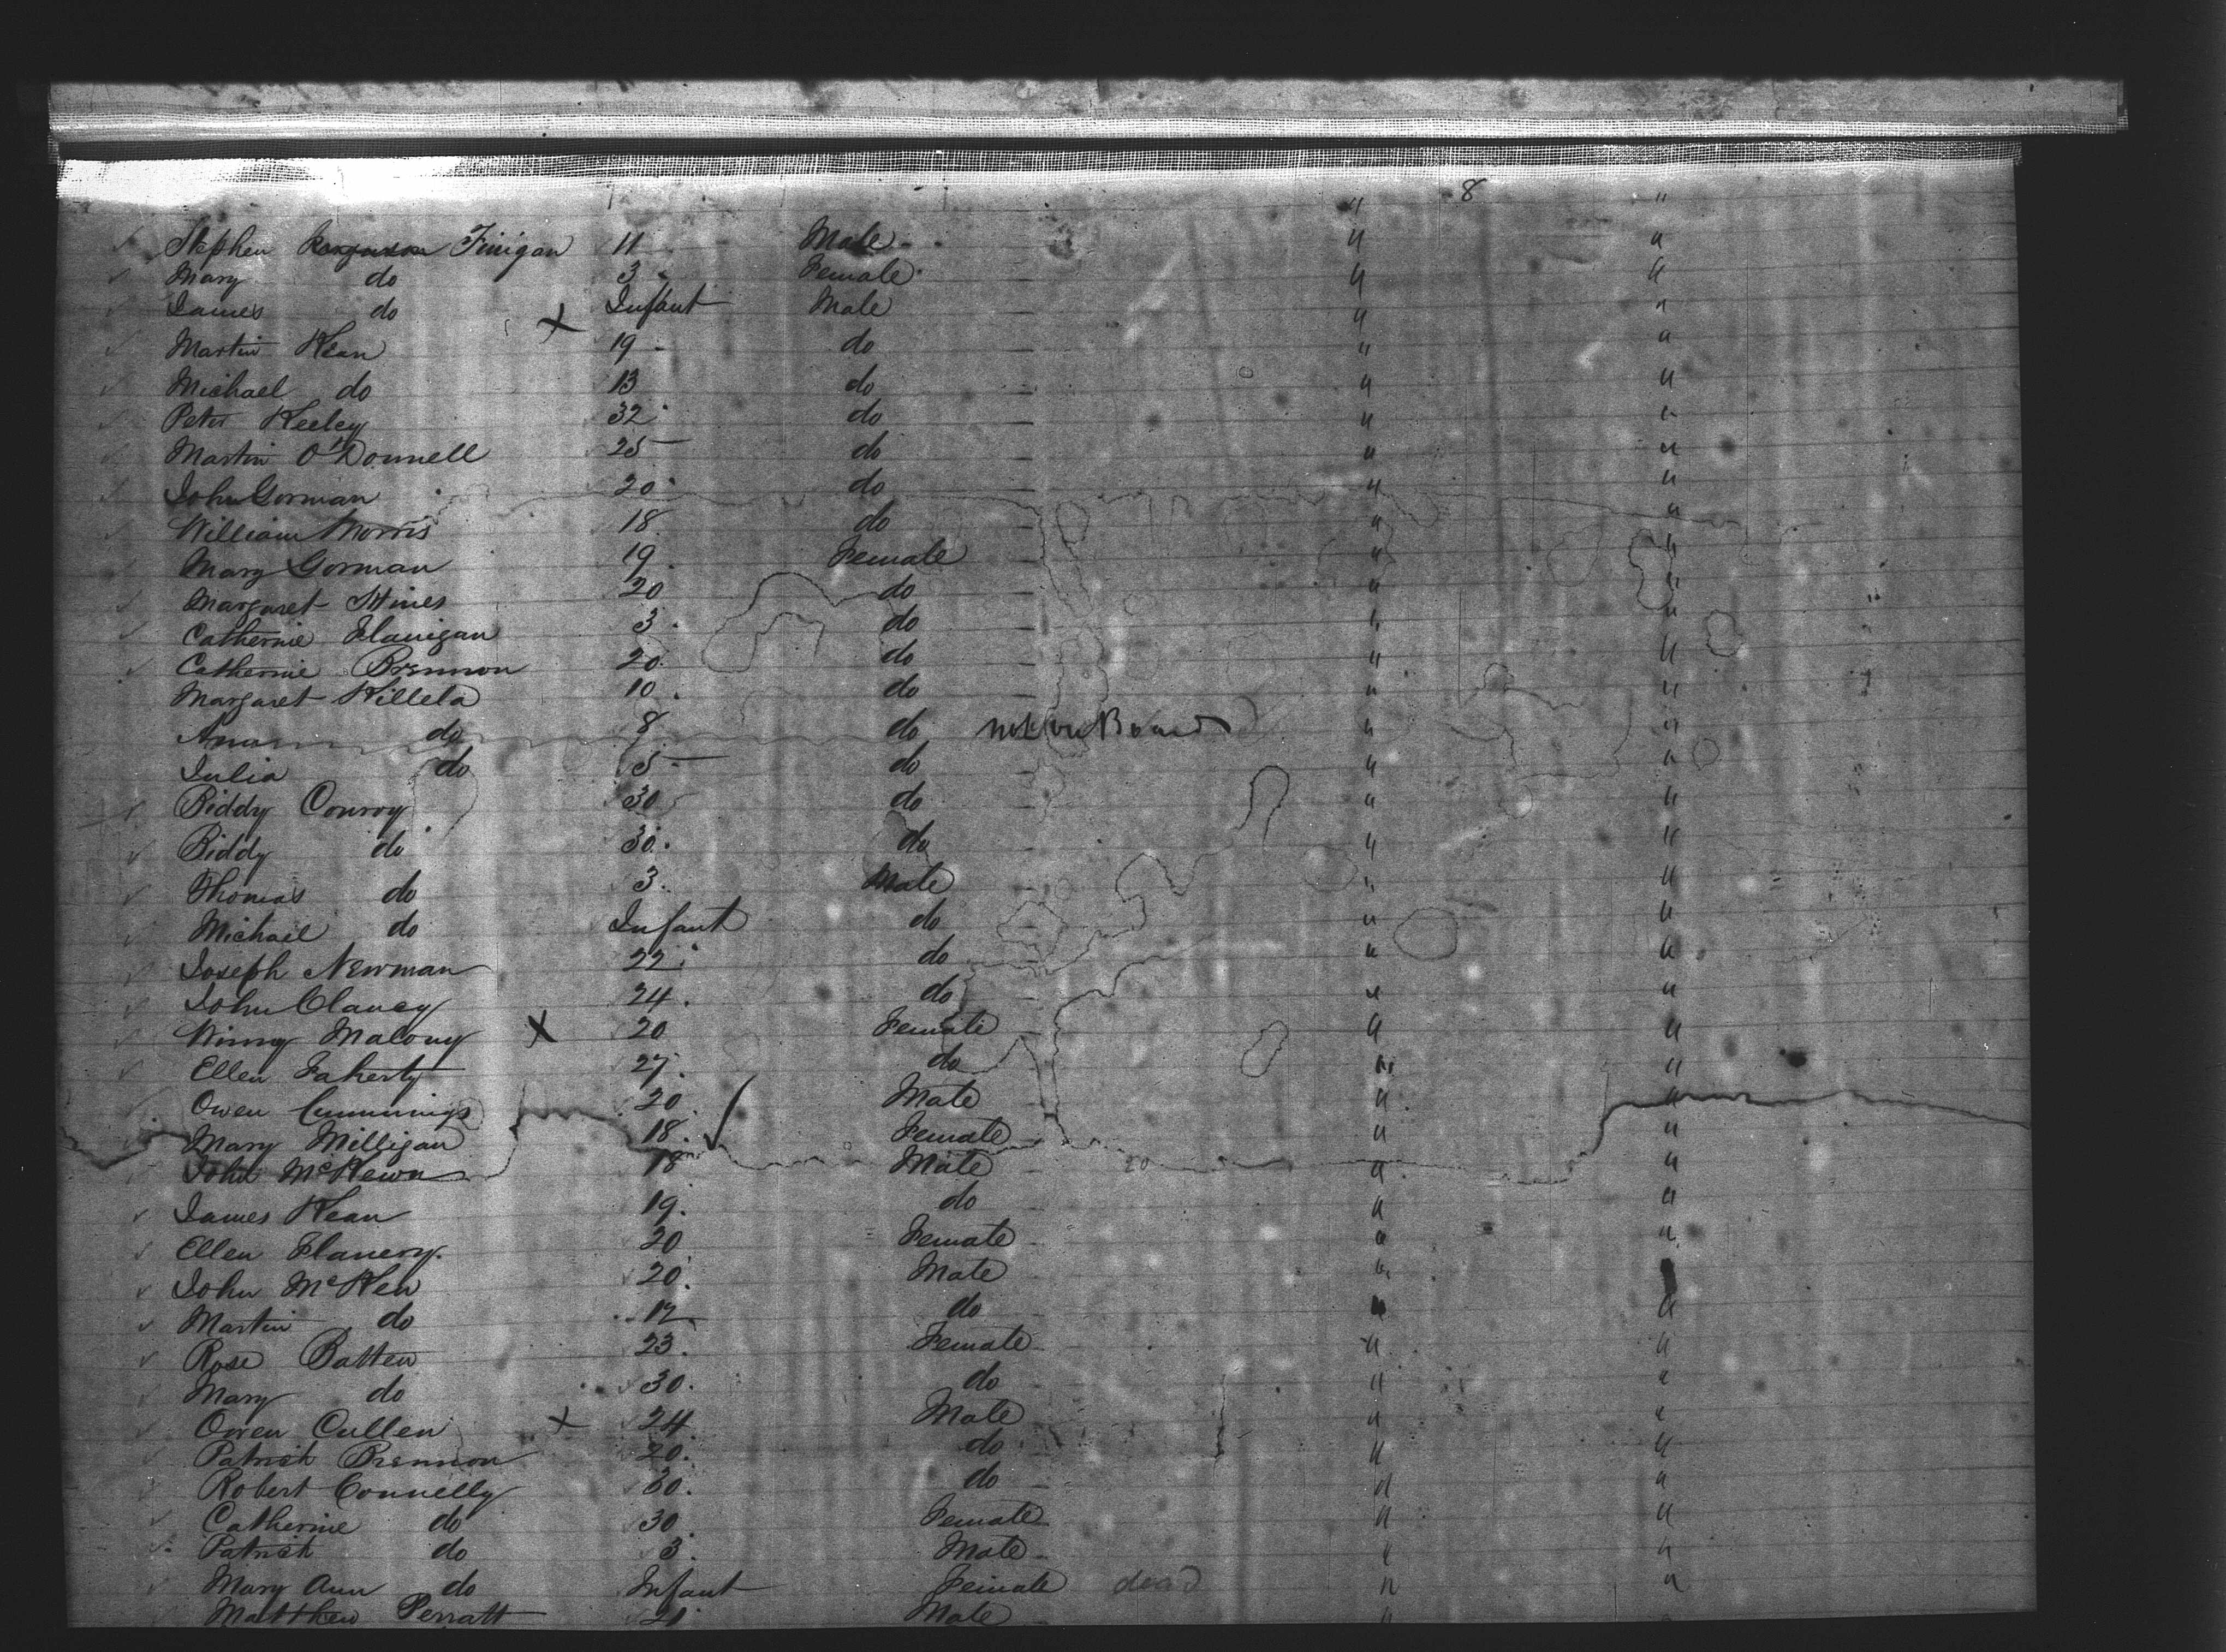 " 8 "
Stephen Finigan 11 Male " "
Mary do 3 Female " "
James do Infant Male " "
Martin Kean 19 do " "
Michael do 13 do " "
Peter Keeley 32 do " "
Martin O'Donnell 25 do " "
John Gorman 20 do " "
William Morris 18 do " "
Mary Gorman 19 Female " "
Margaret Hines 20 do " "
Catherine Flanigan 3 do " "
Catherine Brennon 20 do " "
Margaret Killela 10 do " "
Ann do 8 do not on Board " "
Julia do 5 do " "
Biddy Conroy 30 do " "
Biddy do 30 do " "
Thomas do 3 Male " "
Michael do Infant do " "
Joseph Newman 22 do " "
John Clancy 24 do " "
Winny Malony 20 Female " "
Ellen Faherty 27 do " "
Owen Cummings 20 Male " "
Mary Milligan 18 Female " "
John McKewn 18 Male " "
James Kean 19 do " "
Ellen Flanery 20 Female " "
John McKew 20 Male "
Martin do 17 do " "
Rose Batten 23 Female " "
Mary do 30 do " "
Owen Cullen 24 Male " "
Patrick Brennon 20 do " "
Robert Connelly 30 do " "
Catherine do 30 Female " "
Patrick do 3 Male " "
Mary Ann do Infant Female dead " "
Matthew Perratt 21 Male "